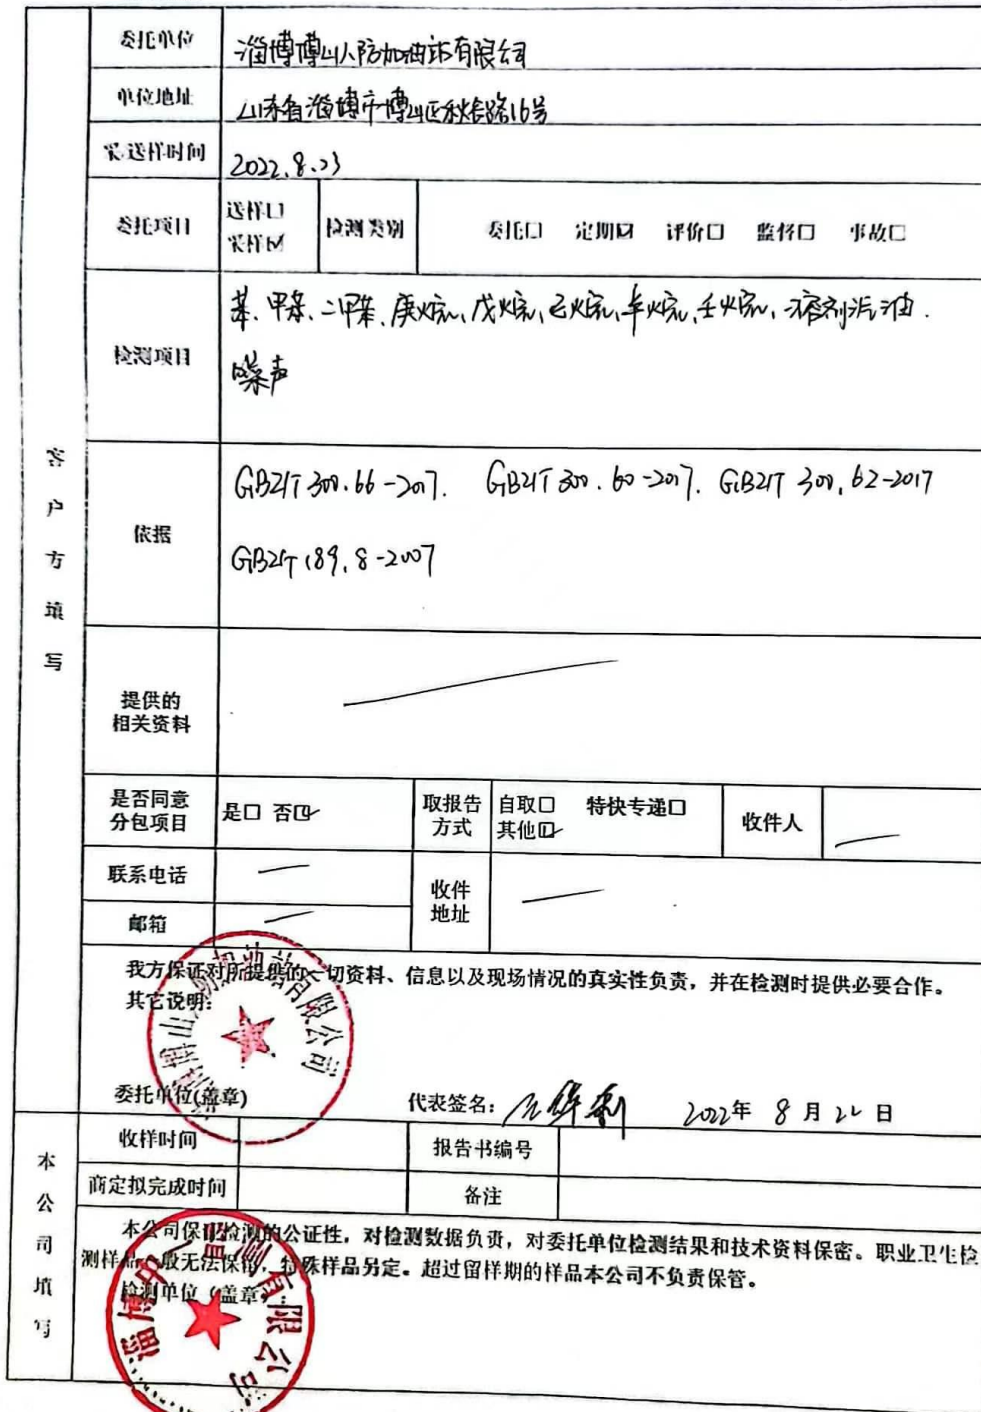 委托单位 淄博博山人防加油站有限公司
单位地址 山东省淄博市博山区秋谷路16号
采、送样时间 2022.8.23
委托项目 送样□ 采样☑ 检测类别 委托□ 定期☑ 评价□ 监督□ 事故□
检测项目 苯、甲苯、二甲苯、庚烷、戊烷、己烷、辛烷、壬烷、溶剂汽油.
噪声
依据 GBZ/T 300.66-2017. GBZ/T 300.60-2017. GBZ/T 300.62-2017
GBZ/T 189.8-2007
客户方填写
提供的
相关资料
是否同意
分包项目 是□ 否☑ 取报告
方式 自取□ 特快专递□
其他☑ 收件人
联系电话 收件
地址
邮箱
我方保证对所提供的一切资料、信息以及现场情况的真实性负责，并在检测时提供必要合作。
其它说明:
委托单位(盖章) 代表签名: 2022年 8月22日
收样时间 报告书编号
商定拟完成时间 备注
本公司填写
本公司保证检测的公证性，对检测数据负责，对委托单位检测结果和技术资料保密。职业卫生检
测样品一般无法保留，特殊样品另定。超过留样期的样品本公司不负责保管。
检测单位（盖章）